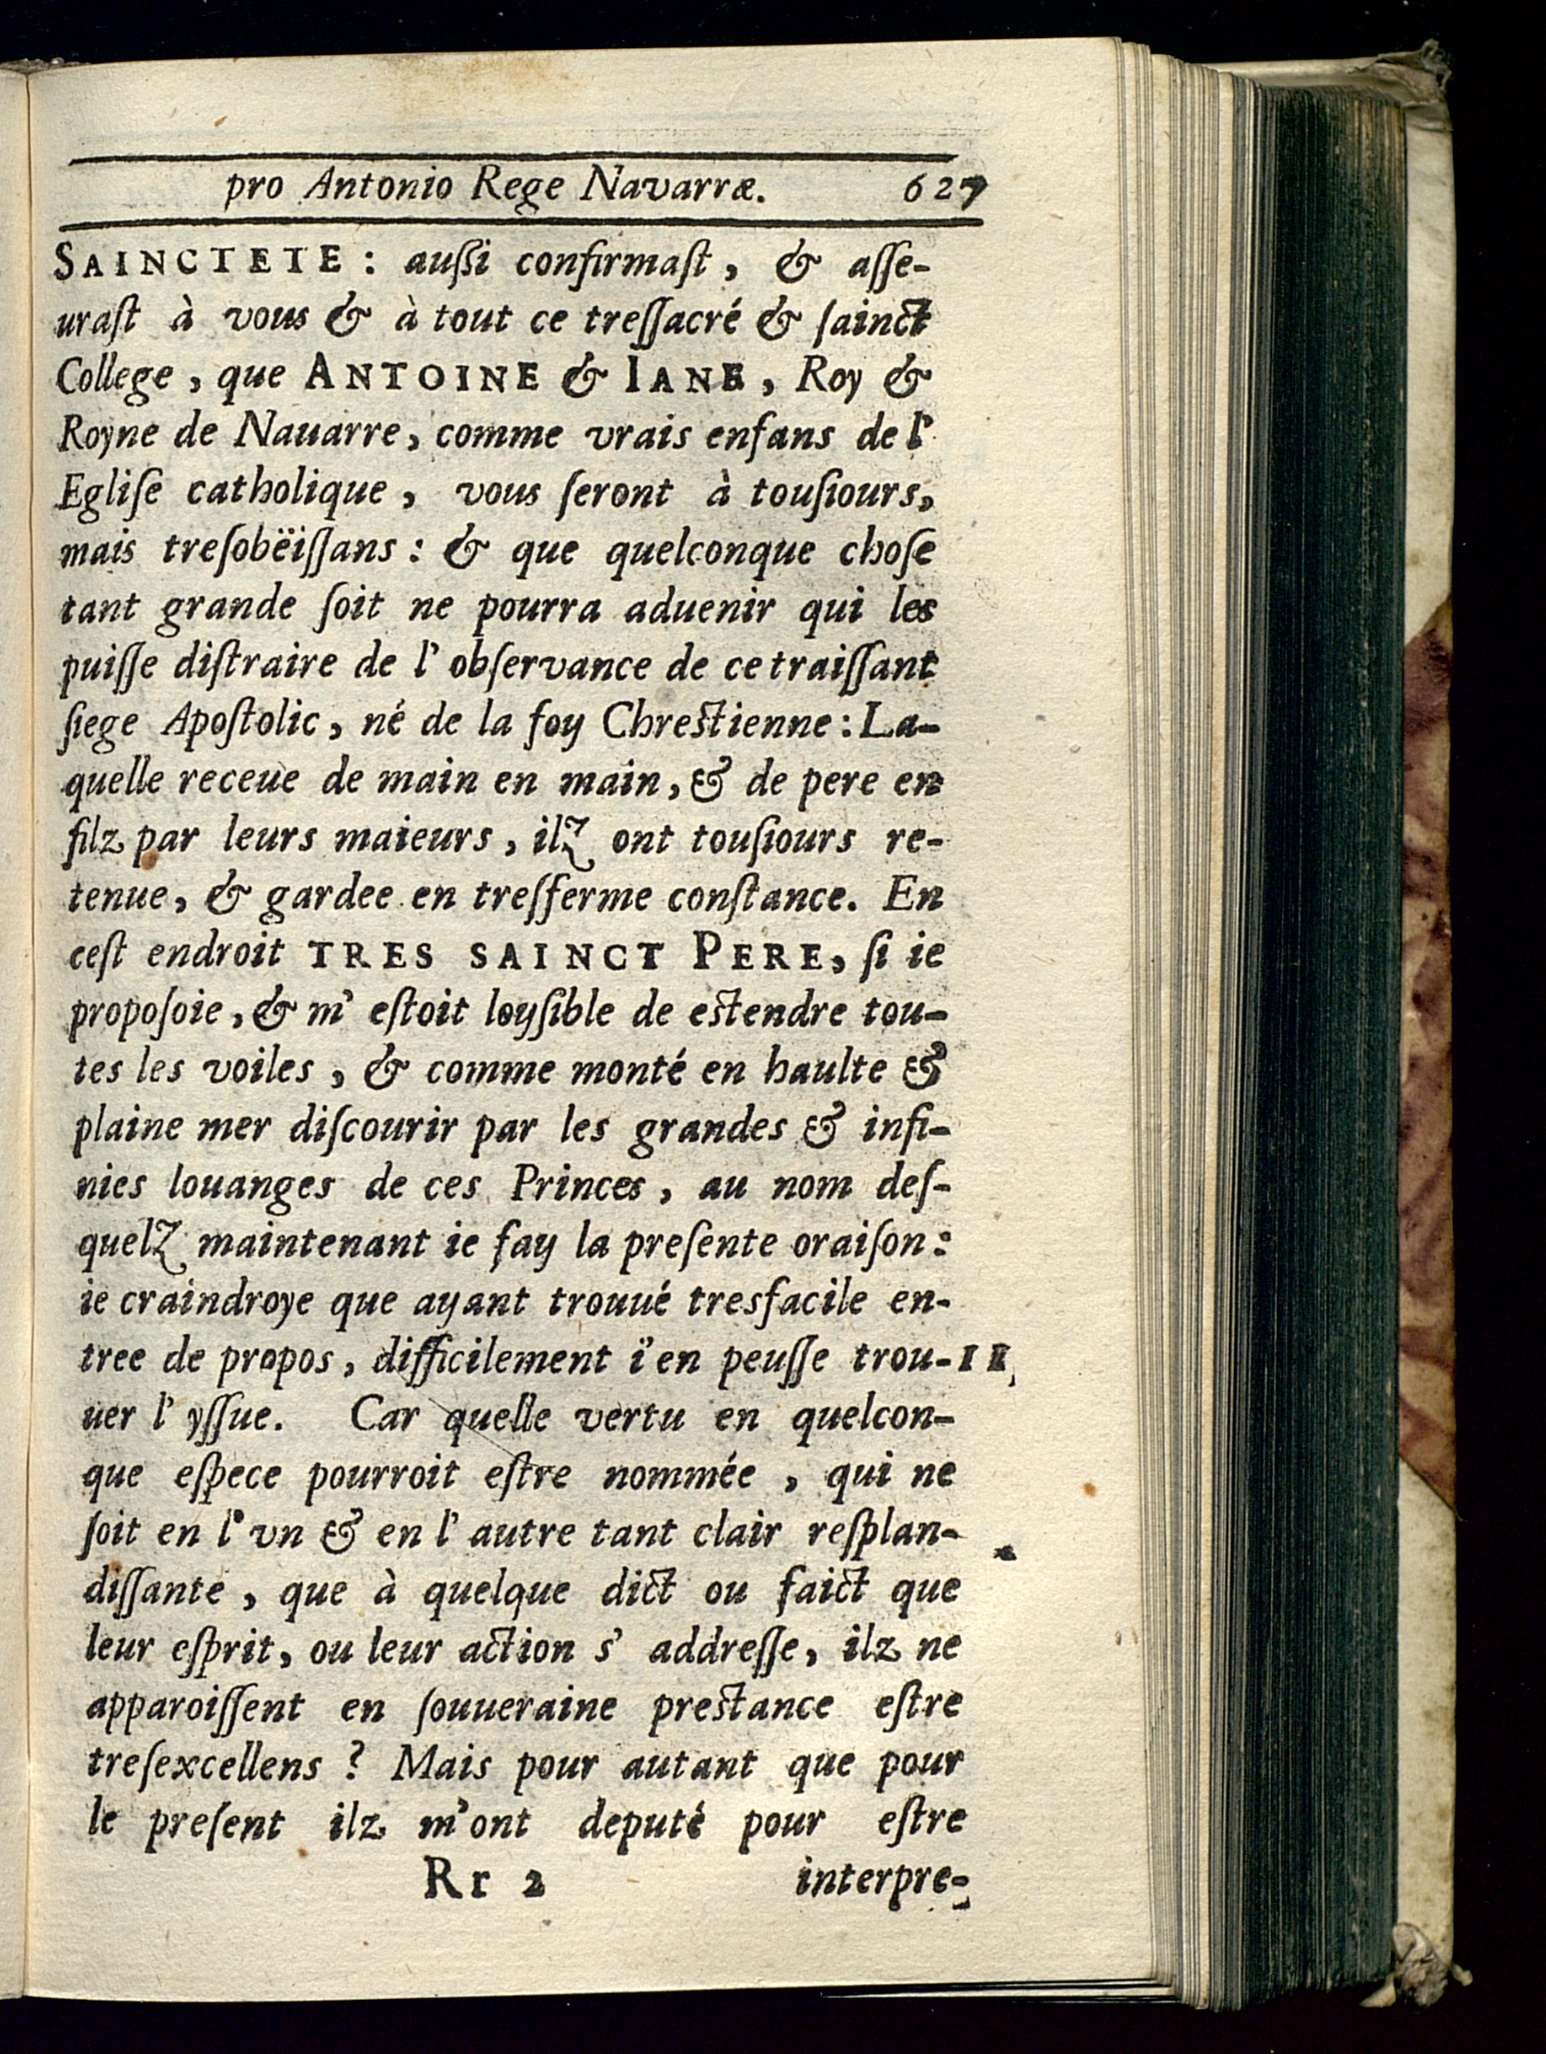 pro Antonio Rege Navarræ. 627
SAINCTETE : auſſi confirmaſt, & aſſe-
uraſt à vous & à tout ce treſſacré & ſainct
College, que ANTOINE & IANE, Roy &
Royne de Nauarre, comme vrais enfans de l'
Egliſe catholique, vous ſeront à touſiours,
mais treſobëiſſans : & que quelconque choſe
tant grande ſoit ne pourra aduenir qui les
puiſſe diſtraire de l' obſervance de ce traiſſant
ſiege Apoſtolic, né de la foy Chreſtienne : La-
quelle receue de main en main, & de pere en
filz par leurs maieurs, ilz ont touſiours re-
tenue, & gardee en treſferme conſtance. En
ceſt endroit TRES SAINCT PERE, ſi ie
propoſoie, & m' eſtoit loyſible de eſtendre tou-
tes les voiles, & comme monté en haulte &
plaine mer diſcourir par les grandes & infi-
nies louanges de ces Princes, au nom deſ-
quelz maintenant ie fay la preſente oraiſon :
ie craindroye que ayant trouué tresfacile en-
tree de propos, difficilement i'en peuſſe trou- II,
uer l' yſſue. Car quelle vertu en quelcon-
que eſpece pourroit eſtre nommée, qui ne
ſoit en l' vn & en l' autre tant clair reſplan-
diſſante, que à quelque dict ou faict que
leur eſprit, ou leur action s' addreſſe, ilz ne
apparoiſſent en ſouueraine preſtance eſtre
treſexcellens ? Mais pour autant que pour
le preſent ilz m'ont deputé pour eſtre
Rr 2 interpre-